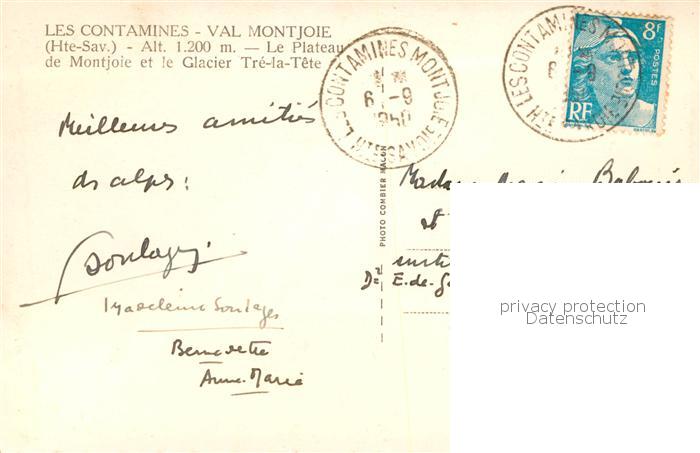 LES CONTAMINES - VAL MONTJOIE
(Hte-Sav.) - Alt. 1.200 m. — Le Plateau
de Montjoie et le Glacier Tré-la-Tête
LES CONTAMINES MONTJOIE
6 -9
1950
HTE SAVOIE
LES CONTAMINES
6 -9
HTE SAVOIE
8F
POSTES
RF
Meilleures amitiés
des alpes :
Soulages
Madeleine Soulages
Bernadette
Anne-Marie
PHOTO COMBIER MACON
Madame
et
E.-de-G
privacy protection
Datenschutz